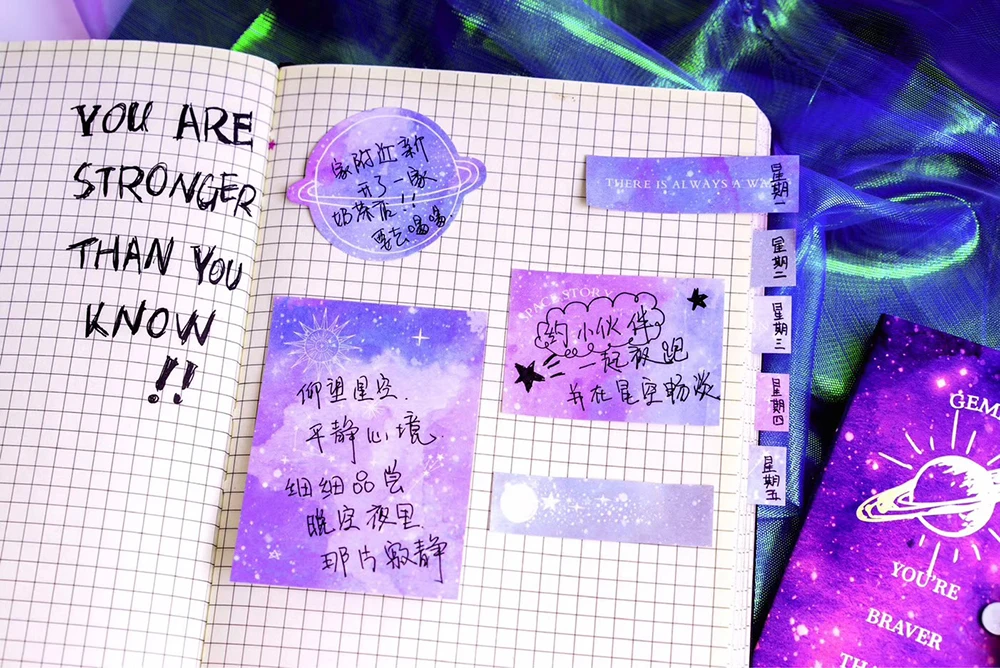 YOU ARE
STRONGER
THAN YOU
KNOW
!!
家附近新
开了一家
奶茶店!!
要去嗑嗑.
仰望星空.
平静心境.
细细品尝
晚空夜里.
那片寂静
THERE IS ALWAYS A WA
SPACE STORY
约小伙伴
一起夜跑
并在星空畅谈
星期一
星期二
星期三
星期四
星期五
GEMI
YOU'RE
BRAVER
TH